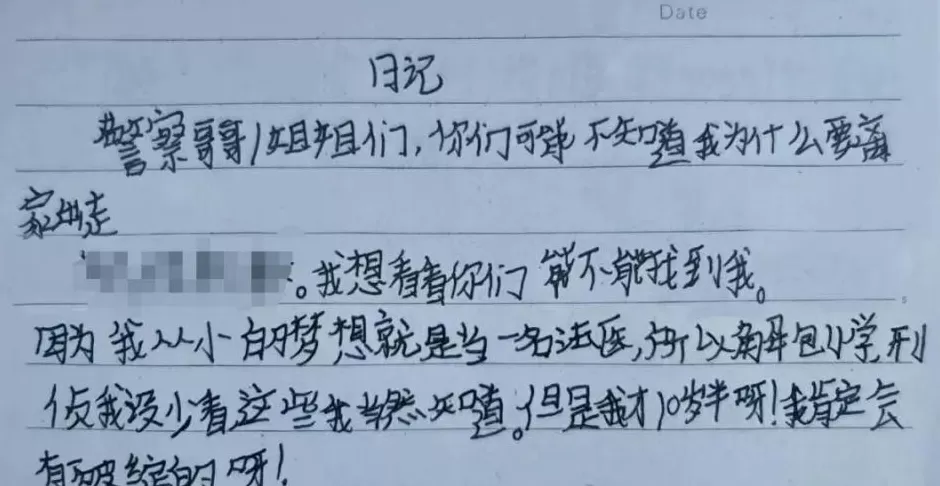 Date
日记
警察哥哥/姐姐们，你们可能不知道我为什么要离
家出走
。我想看看你们能不能找到我。
因为我从小的梦想就是当一名法医，所以解剖学，刑
侦我没少看这些我当然知道。但是我才10岁半呀！我肯定会
有破绽的呀！